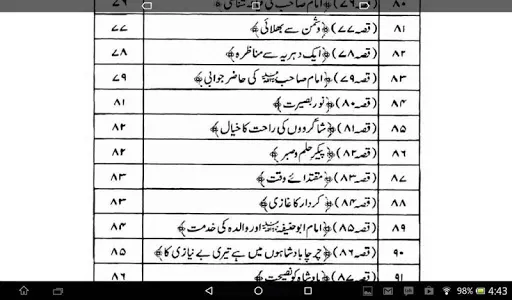 ۸۰ (قصہ ۷۶) ﴿امام صاحب کی
۸۱ (قصہ ۷۷) ﴿دشمن سے بھلائی﴾ ۷۷
۸۲ (قصہ ۷۸) ﴿ایک دہریہ سے مناظرہ﴾ ۷۸
۸۳ (قصہ ۷۹) ﴿امام صاحبؒ کی حاضر جوابی﴾ ۷۹
۸۴ (قصہ ۸۰) ﴿نور بصیرت﴾ ۸۱
۸۵ (قصہ ۸۱) ﴿شاگردوں کی راحت کا خیال﴾ ۸۲
۸۶ (قصہ ۸۲) ﴿پیکر حلم و صبر﴾ ۸۲
۸۷ (قصہ ۸۳) ﴿مقتدائے وقت﴾ ۸۳
۸۸ (قصہ ۸۴) ﴿کردار کا غازی﴾ ۸۳
۸۹ (قصہ ۸۵) ﴿امام ابوحنیفہؒ اور والدہ کی خدمت﴾ ۸۴
۹۰ (قصہ ۸۶) ﴿چرچا بادشاہوں میں ہے تیری بے نیازی کا﴾ ۸۵
۹۱ (قصہ ۸۷) ﴿بادشاہ کو نصیحت﴾ ۸۶
98% 4:43